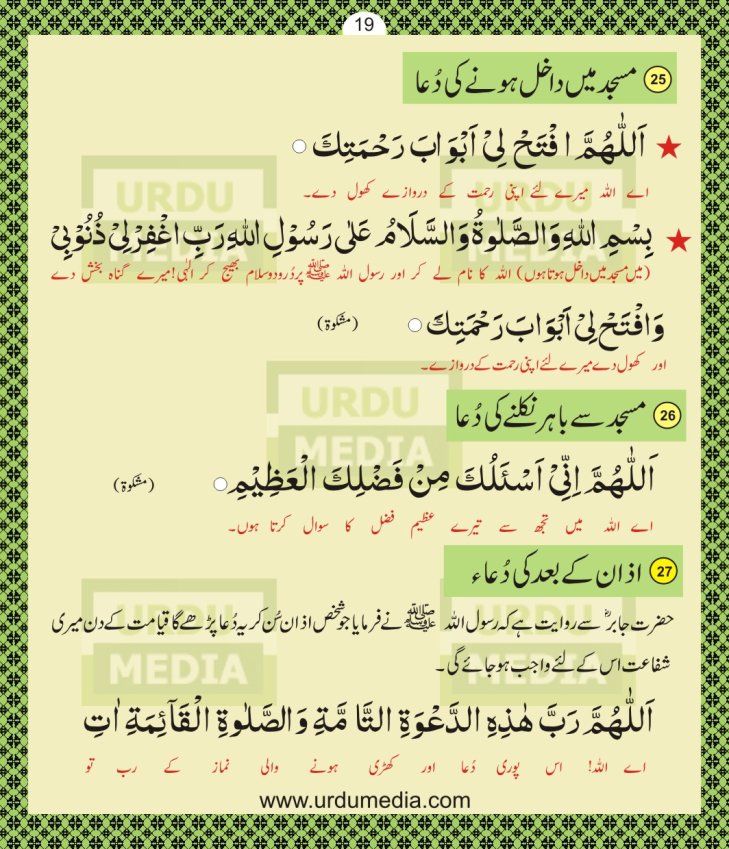 19
25 مسجد میں داخل ہونے کی دُعا
★ اَللّٰهُمَّ ا فْتَحْ لِیْ اَبْوَابَ رَحْمَتِكَ ○
اے اللہ میرے لئے اپنی رحمت کے دروازے کھول دے۔
★ بِسْمِ اللهِ وَالصَّلٰوةُ وَالسَّلَامُ عَلٰی رَسُوْلِ اللهِ رَبِّ اغْفِرْلِیْ ذُنُوْبِیْ
(میں مسجد میں داخل ہوتا ہوں) اللہ کا نام لے کر اور رسول اللہ ﷺ پر دُرود وسلام بھیج کر الٰہی! میرے گناہ بخش دے
وَافْتَحْ لِیْ اَبْوَابَ رَحْمَتِكَ ○ (مشکوٰۃ)
اور کھول دے میرے لئے اپنی رحمت کے دروازے۔
26 مسجد سے باہر نکلنے کی دُعا
اَللّٰهُمَّ اِنِّیْ اَسْئَلُكَ مِنْ فَضْلِكَ الْعَظِیْمِ ○ (مشکوٰۃ)
اے اللہ میں تجھ سے تیرے عظیم فضل کا سوال کرتا ہوں۔
27 اذان کے بعد کی دُعاء
حضرت جابرؓ سے روایت ہے کہ رسول اللہ ﷺ نے فرمایا جو شخص اذان سُن کر یہ دُعا پڑھے گا قیامت کے دن میری
شفاعت اس کے لئے واجب ہو جائے گی۔
اَللّٰهُمَّ رَبَّ هٰذِهِ الدَّعْوَةِ التَّا مَّةِ وَالصَّلٰوةِ الْقَآئِمَةِ اٰتِ
اے اللہ! اس پوری دُعا اور کھڑی ہونے والی نماز کے رب تو
www.urdumedia.com
URDU MEDIA
URDU MEDIA
URDU MEDIA
URDU MEDIA
URDU MEDIA